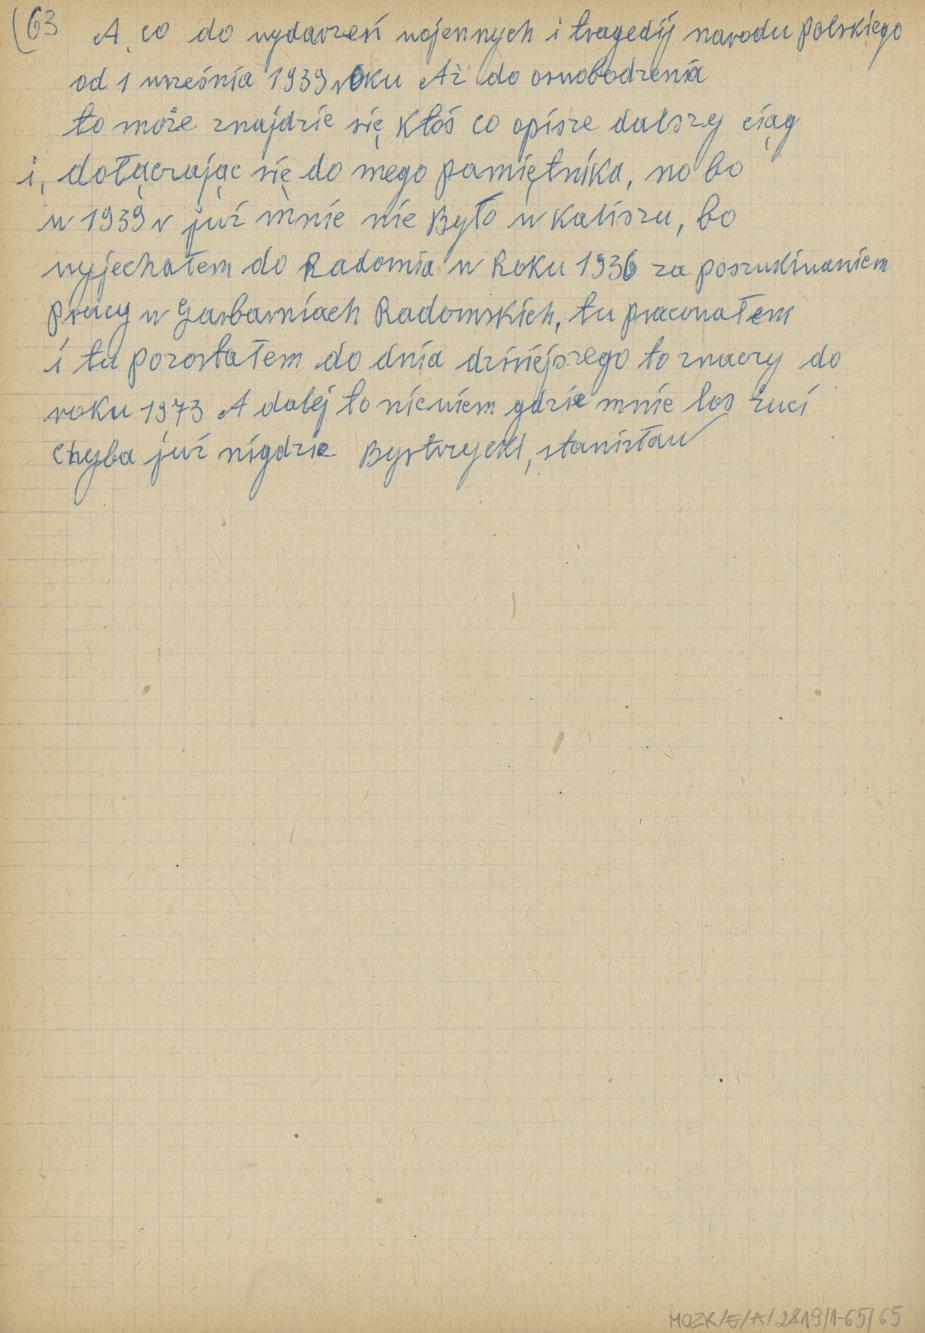 (63 A, co do wydarzeń wojennych i tragedij narodu polskiego
od 1 września 1939 roku Aż do oswobodzenia
to może znajdzie się ktoś co opisze dalszy ciąg
i, dołączając się do mego pamiętnika, no bo
w 1939 r już mnie nie Było w Kaliszu, bo
wyjechałem do Radomia w Roku 1936 za poszukiwaniem
pracy w Garbarniach Radomskich, tu pracowałem
i tu pozostałem do dnia dzisiejszego to znaczy do
roku 1973 A dalej to niewiem gdzie mnie los żuci
Chyba już nigdzie Bystrzycki, stanisław
MOZK/E/A/2819/1-65/65